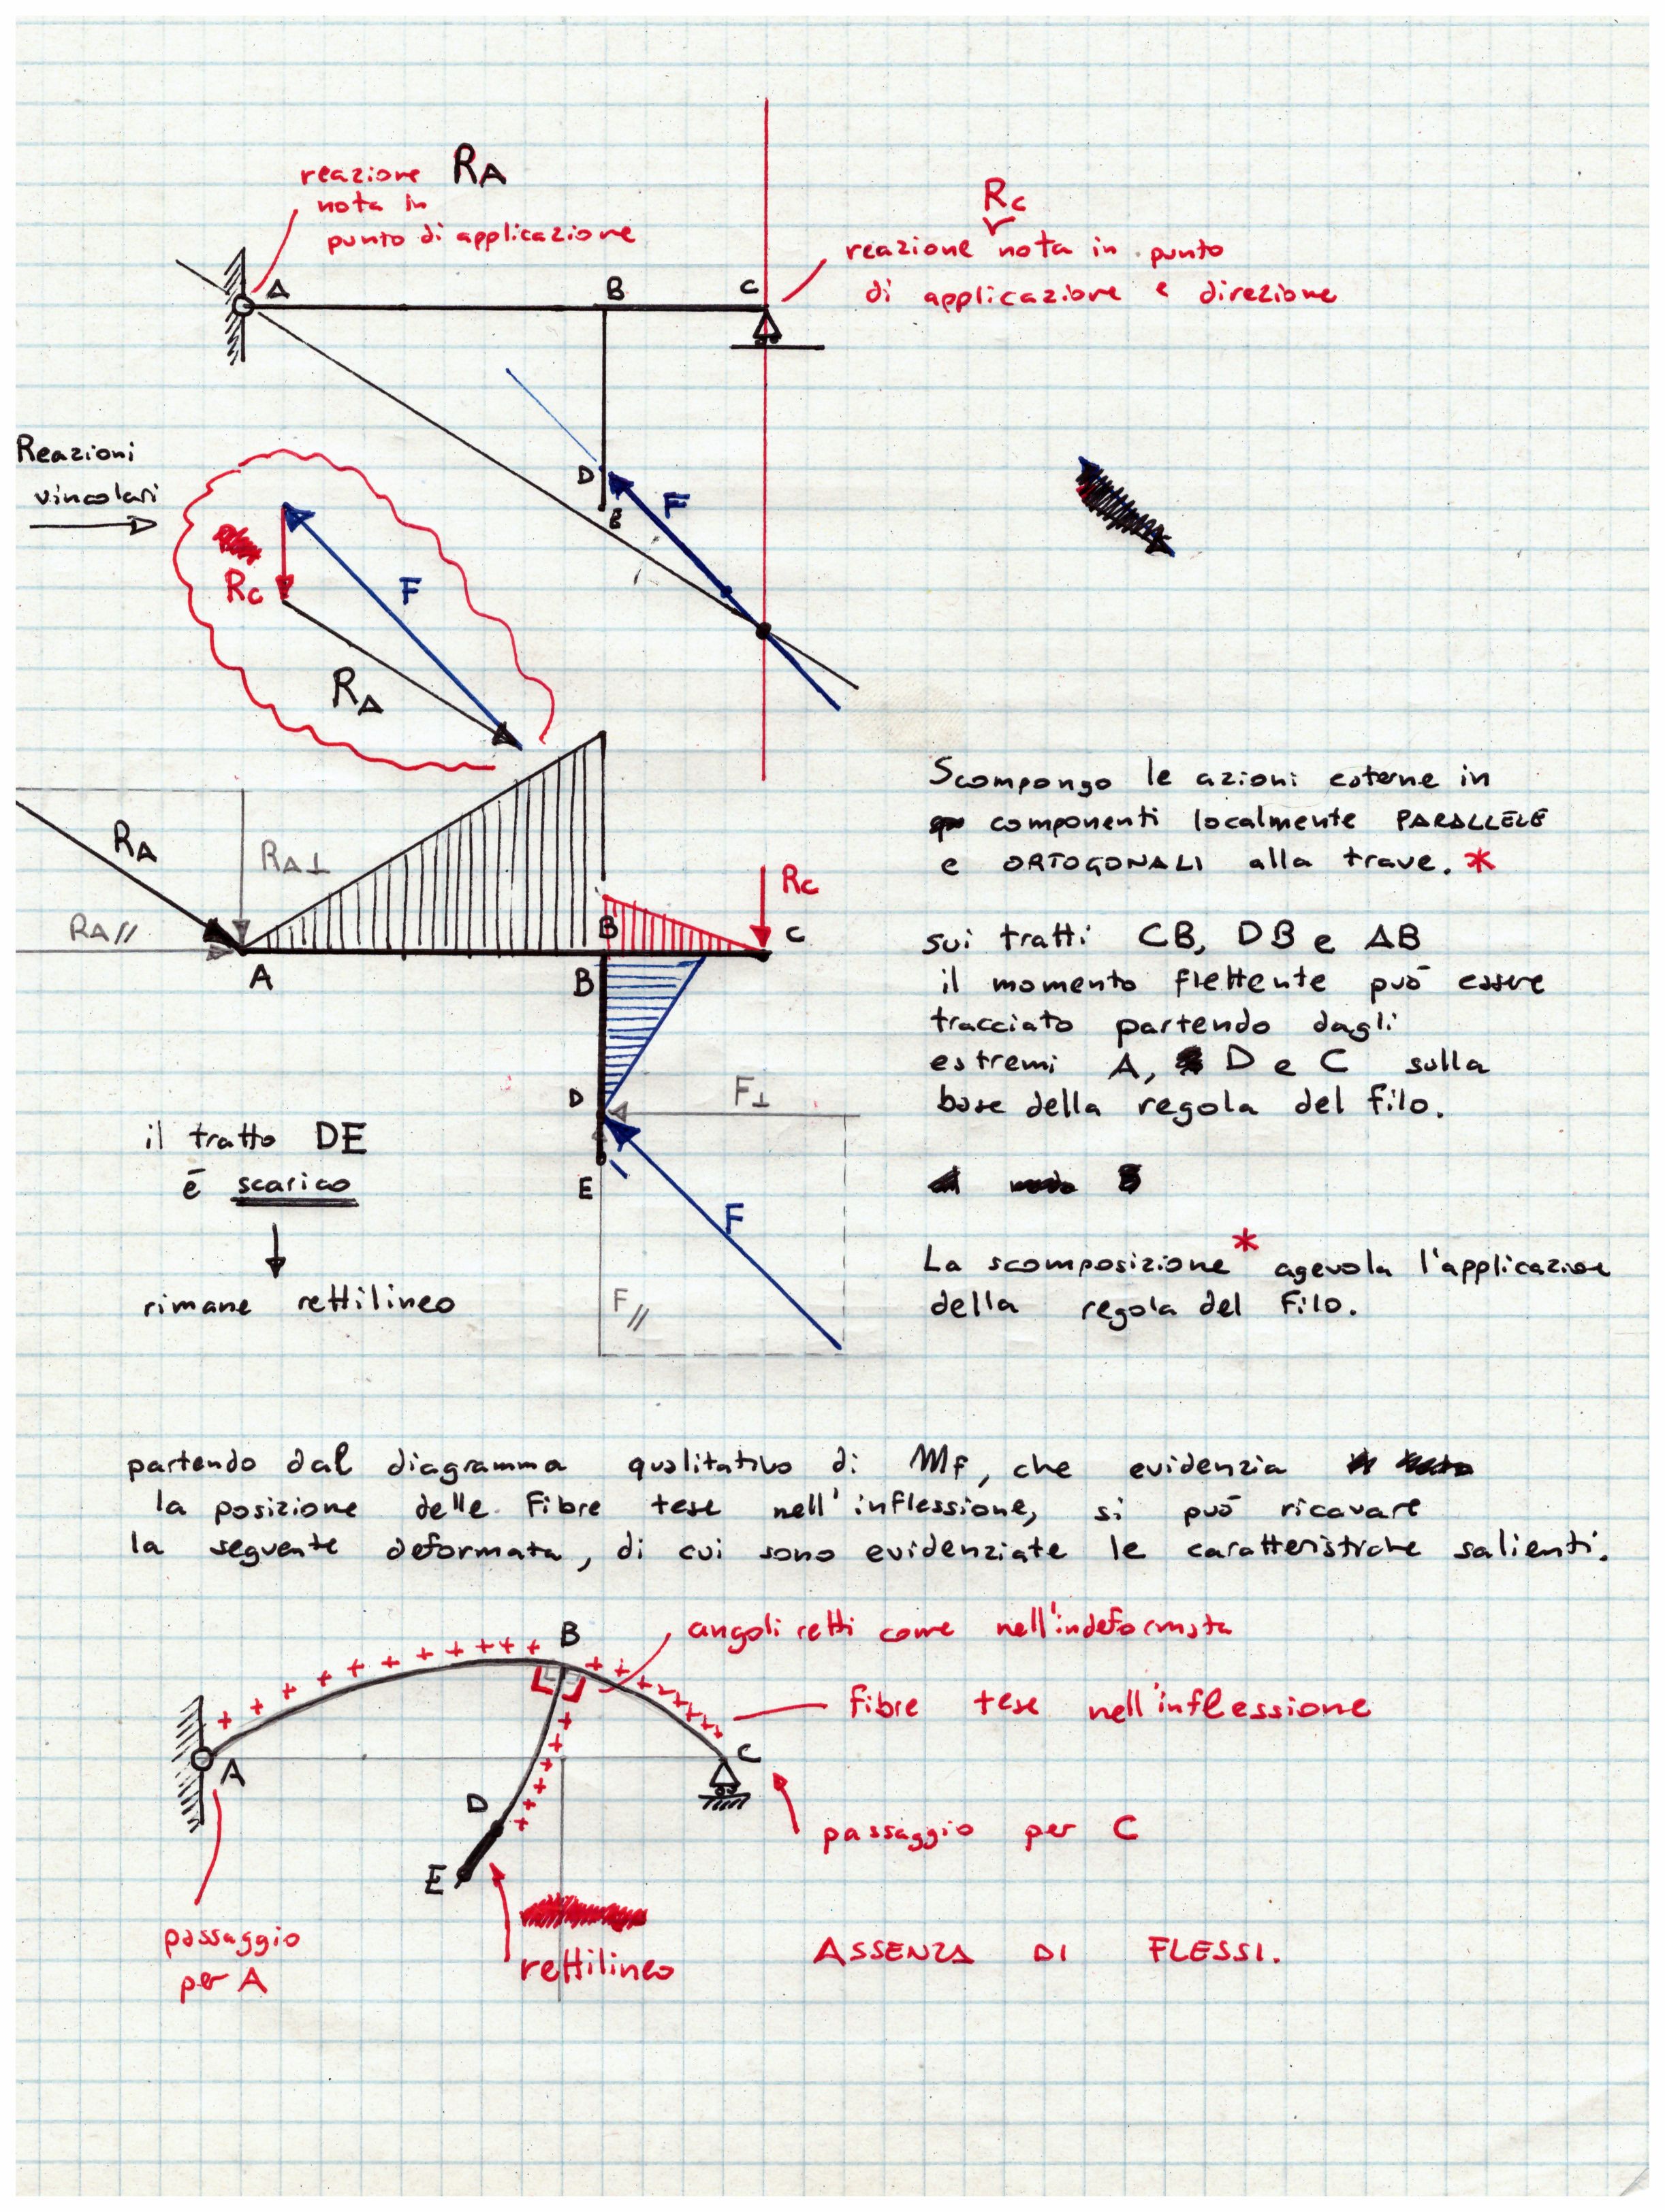 reazione RA
nota in
punto di applicazione
Rc
reazione nota in punto
di applicazione e direzione
A
B
C
D
E
F
Reazioni
vincolari
Rc
F
RA
RA
RA⊥
RA//
A
B
B
Rc
C
D
F⊥
E
F
F//
Scompongo le azioni esterne in
componenti localmente PARALLELE
e ORTOGONALI alla trave. *
sui tratti CB, DB e AB
il momento flettente può essere
tracciato partendo dagli
estremi A, D e C sulla
base della regola del filo.
il tratto DE
è scarico
rimane rettilineo
La scomposizione * agevola l'applicazione
della regola del filo.
partendo dal diagramma qualitativo di Mf, che evidenzia
la posizione delle fibre tese nell'inflessione, si può ricavare
la seguente deformata, di cui sono evidenziate le caratteristiche salienti.
B
angoli retti come nell'indeformata
fibre tese nell'inflessione
A
C
D
E
passaggio per C
passaggio
per A
rettilineo
ASSENZA DI FLESSI.